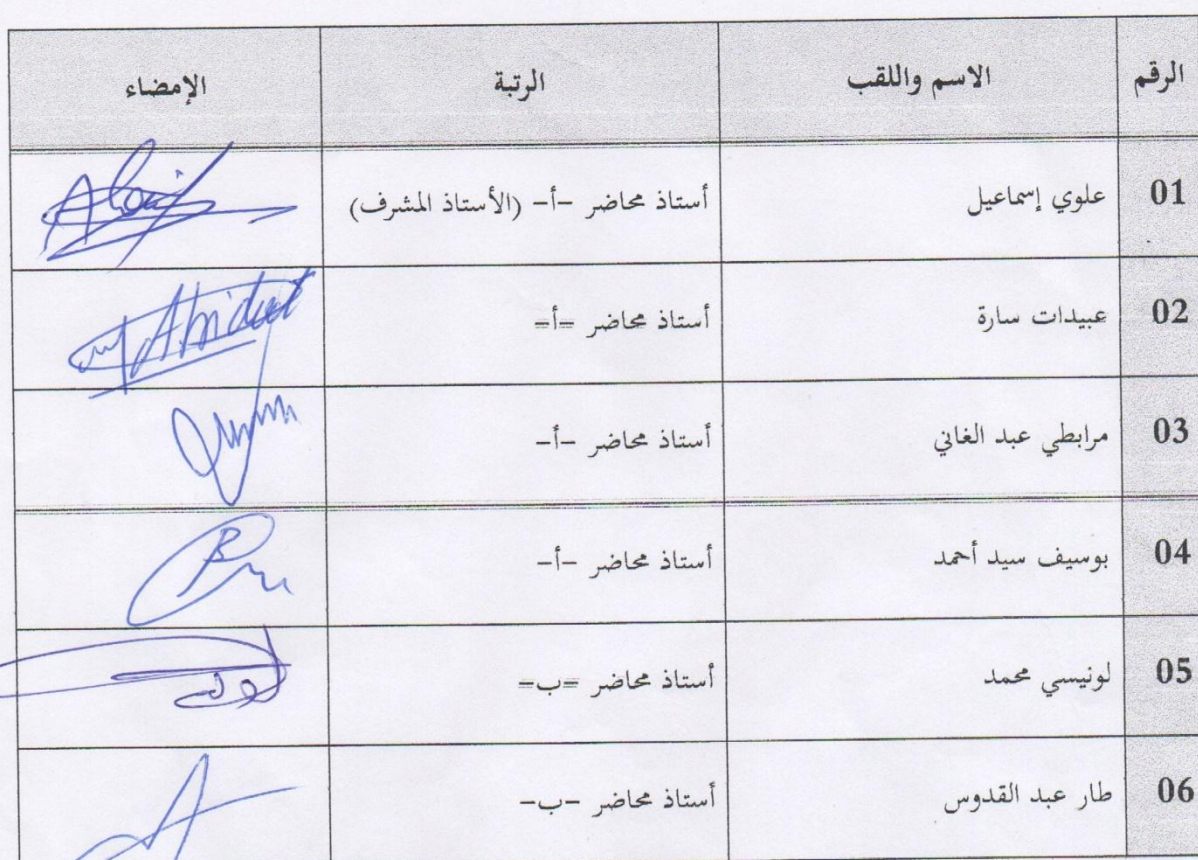 الرقم الاسم واللقب الرتبة الإمضاء
01 علوي إسماعيل أستاذ محاضر -أ- (الأستاذ المشرف)
02 عبيدات سارة أستاذ محاضر -أ-
03 مرابطي عبد الغاني أستاذ محاضر -أ-
04 بوسيف سيد أحمد أستاذ محاضر -أ-
05 لونيسي محمد أستاذ محاضر -ب-
06 طار عبد القدوس أستاذ محاضر -ب-